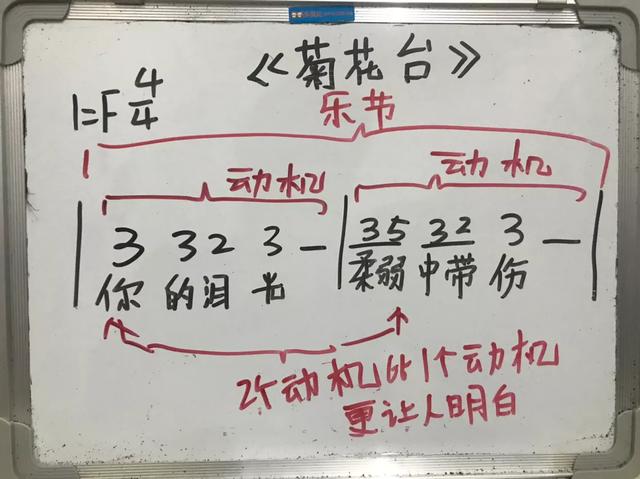 《菊花台》
1=F 4/4
乐节
动机 动机
| 3 32 3 – | 35 32 3 – |
你 的泪 光 柔弱 中带 伤
2个动机比1个动机
更让人明白